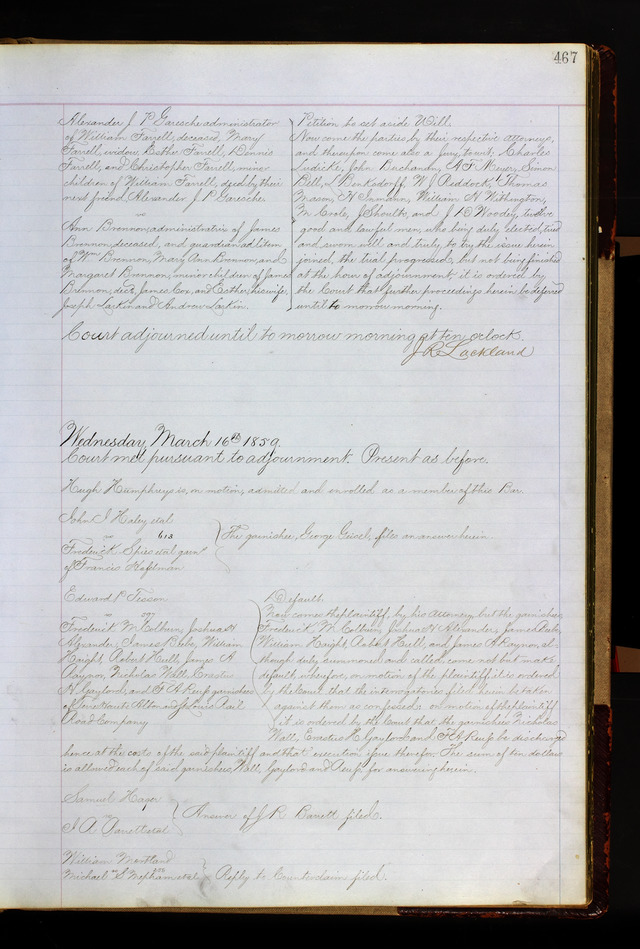 467
Alexander J. P. Garesche administrator
of William Farrell, deceased, Mary
Farrell, widow, Esther Farrell, Dennis
Farrell, and Christopher Farrell, minor
children of William Farrell, decd, by their
next friend Alexander J. P. Garesche
vs
Ann Brennon, administratrix of James
Brennon, deceased, and guardian ad litem
of Wm Brennon, Mary Ann Brennon, and
Margaret Brennon, minor children of James
Brennon, decd, James Cox, and Esther, his wife,
Joseph Larkin and Andrew Larkin.
Petition to set aside Will.
Now come the parties by their respective attorneys,
and thereupon come also a jury, to wit, Charles
Ludicke, John Buchanan, A. F. Meyer, Simon
Bell, Menksdorff, W. J. Reddock, Thomas
Mason, H. Inmann, William H. Withington,
M. Crole, J. Shoults, and J. D. Woodey, twelve
good and lawful men, who being duly elected, tried
and sworn well and truly to try the issue herein
joined, the trial progressed, but not being finished
at the hour of adjournment it is ordered by
the Court that further proceedings herein be deferred
until to morrow morning.
Court adjourned until to morrow morning at ten oclock.
J R Lackland
Wednesday, March 16th 1859.
Court met pursuant to adjournment. Present as before.
Hugh Humphreys is, on motion, admitted and enrolled as a member of this Bar.
John I Haley etal
vs 613
Frederick Spies etal garns
of Francis Hafelman
The garnishee, George Geisel, files an answer herein.
Edward P. Tesson
vs
Frederick M. Colburn, Joshua H
Alexander, James Blebe, William
Haight, Robert Hull, James A
Raynor, Nicholas Wall, Erastus
H. Gaylord, and F. A. Reuss garnishees
of Terre Haute Alton and St Louis Rail
Road Company
Default.
Now comes the plaintiff, by his attorney, but the garnishees,
Frederick M. Colburn, Joshua H. Alexander, James Blebe,
William Haight, Robert Hull, and James A. Raynor, al-
though duly summoned and called, come not but make
default, wherefore, on motion of the plaintiff it is ordered
by the Court that the interrogatories filed herein be taken
against them as confessed. on motion of the plaintiff
it is ordered by the Court that the garnishees Nicholas
Wall, Erastus H. Gaylord and F. A. Reuss be discharged
hence at the costs of the said plaintiff and that execution issue therefor. The sum of ten dollars
is allowed each of said garnishees, Wall, Gaylord and Reuss, for answering herein.
Samuel Hager
vs
J. R. Barrett etal
Answer of J. R. Barrett filed.
William Morsland
vs
Michael S. Mepham etal
Reply to Counterclaim filed.